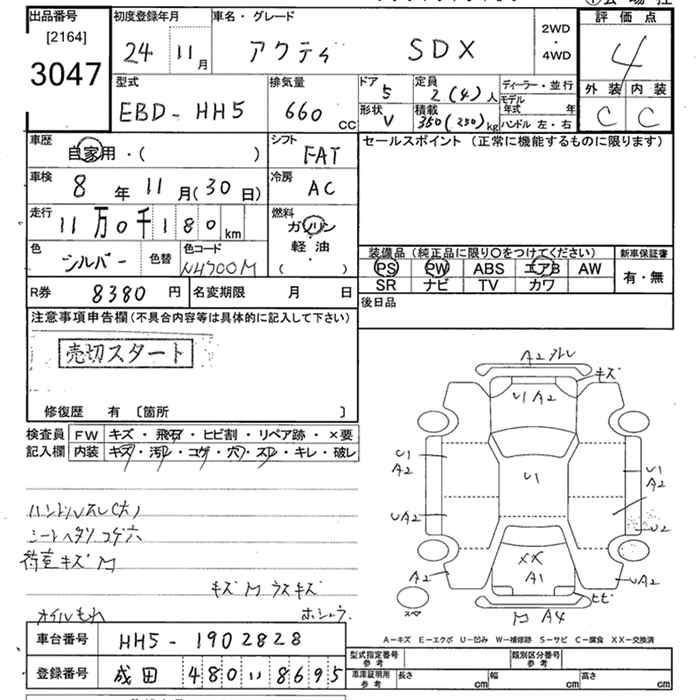 出品番号
[2164]
3047
初度登録年月
24 11月
車名・グレード
アクティ SDX
2WD
・
4WD
評価点
4
外装 内装
C C
型式
EBD-HH5
排気量
660 CC
ドア
5
形状
V
定員
2(4)人
積載
350(250)kg
ディーラー・並行
モデル年式 年
ハンドル 左・右
車歴
自家用・( )
シフト
FAT
車検
8年11月(30日)
冷房
AC
走行
11万0千180km
燃料
ガソリン
軽油
( )
色
シルバー
色替
色コード
NH700M
R券 8380円
名変期限 月 日
セールスポイント (正常に機能するものに限ります)
装備品(純正品に限り○をつけてください)
PS PW ABS エアB AW
SR ナビ TV カワ
新車保証書
有・無
後日品
注意事項申告欄(不具合内容等は具体的に記入して下さい)
売切スタート
修復歴 有 〔箇所 〕
検査員記入欄
FW キズ・飛石・ヒビ割・リペア跡・×要
内装 キズ・汚レ・コゲ・穴・スレ・キレ・破レ
ハンドルスレ(大)
シートヘタリ コゲ穴
荷室キズM
キズM ウスキズ
オイルもれ
ホシュウ
A2 スレ
キズ
U1 A2
U1
A2
U1
U1
A2
UA2
U2
A2
XX
A1
UA2
スペア
ヒビ
M A4
A-キズ E-エクボ U-凹み W-補修跡 S-サビ C-腐食 XX-交換済
車台番号 HH5-1902828
登録番号 成田 480 い 8695
型式指定番号参考
類別区分番号参考
車庫証明用参考
長さ cm 幅 cm 高さ cm